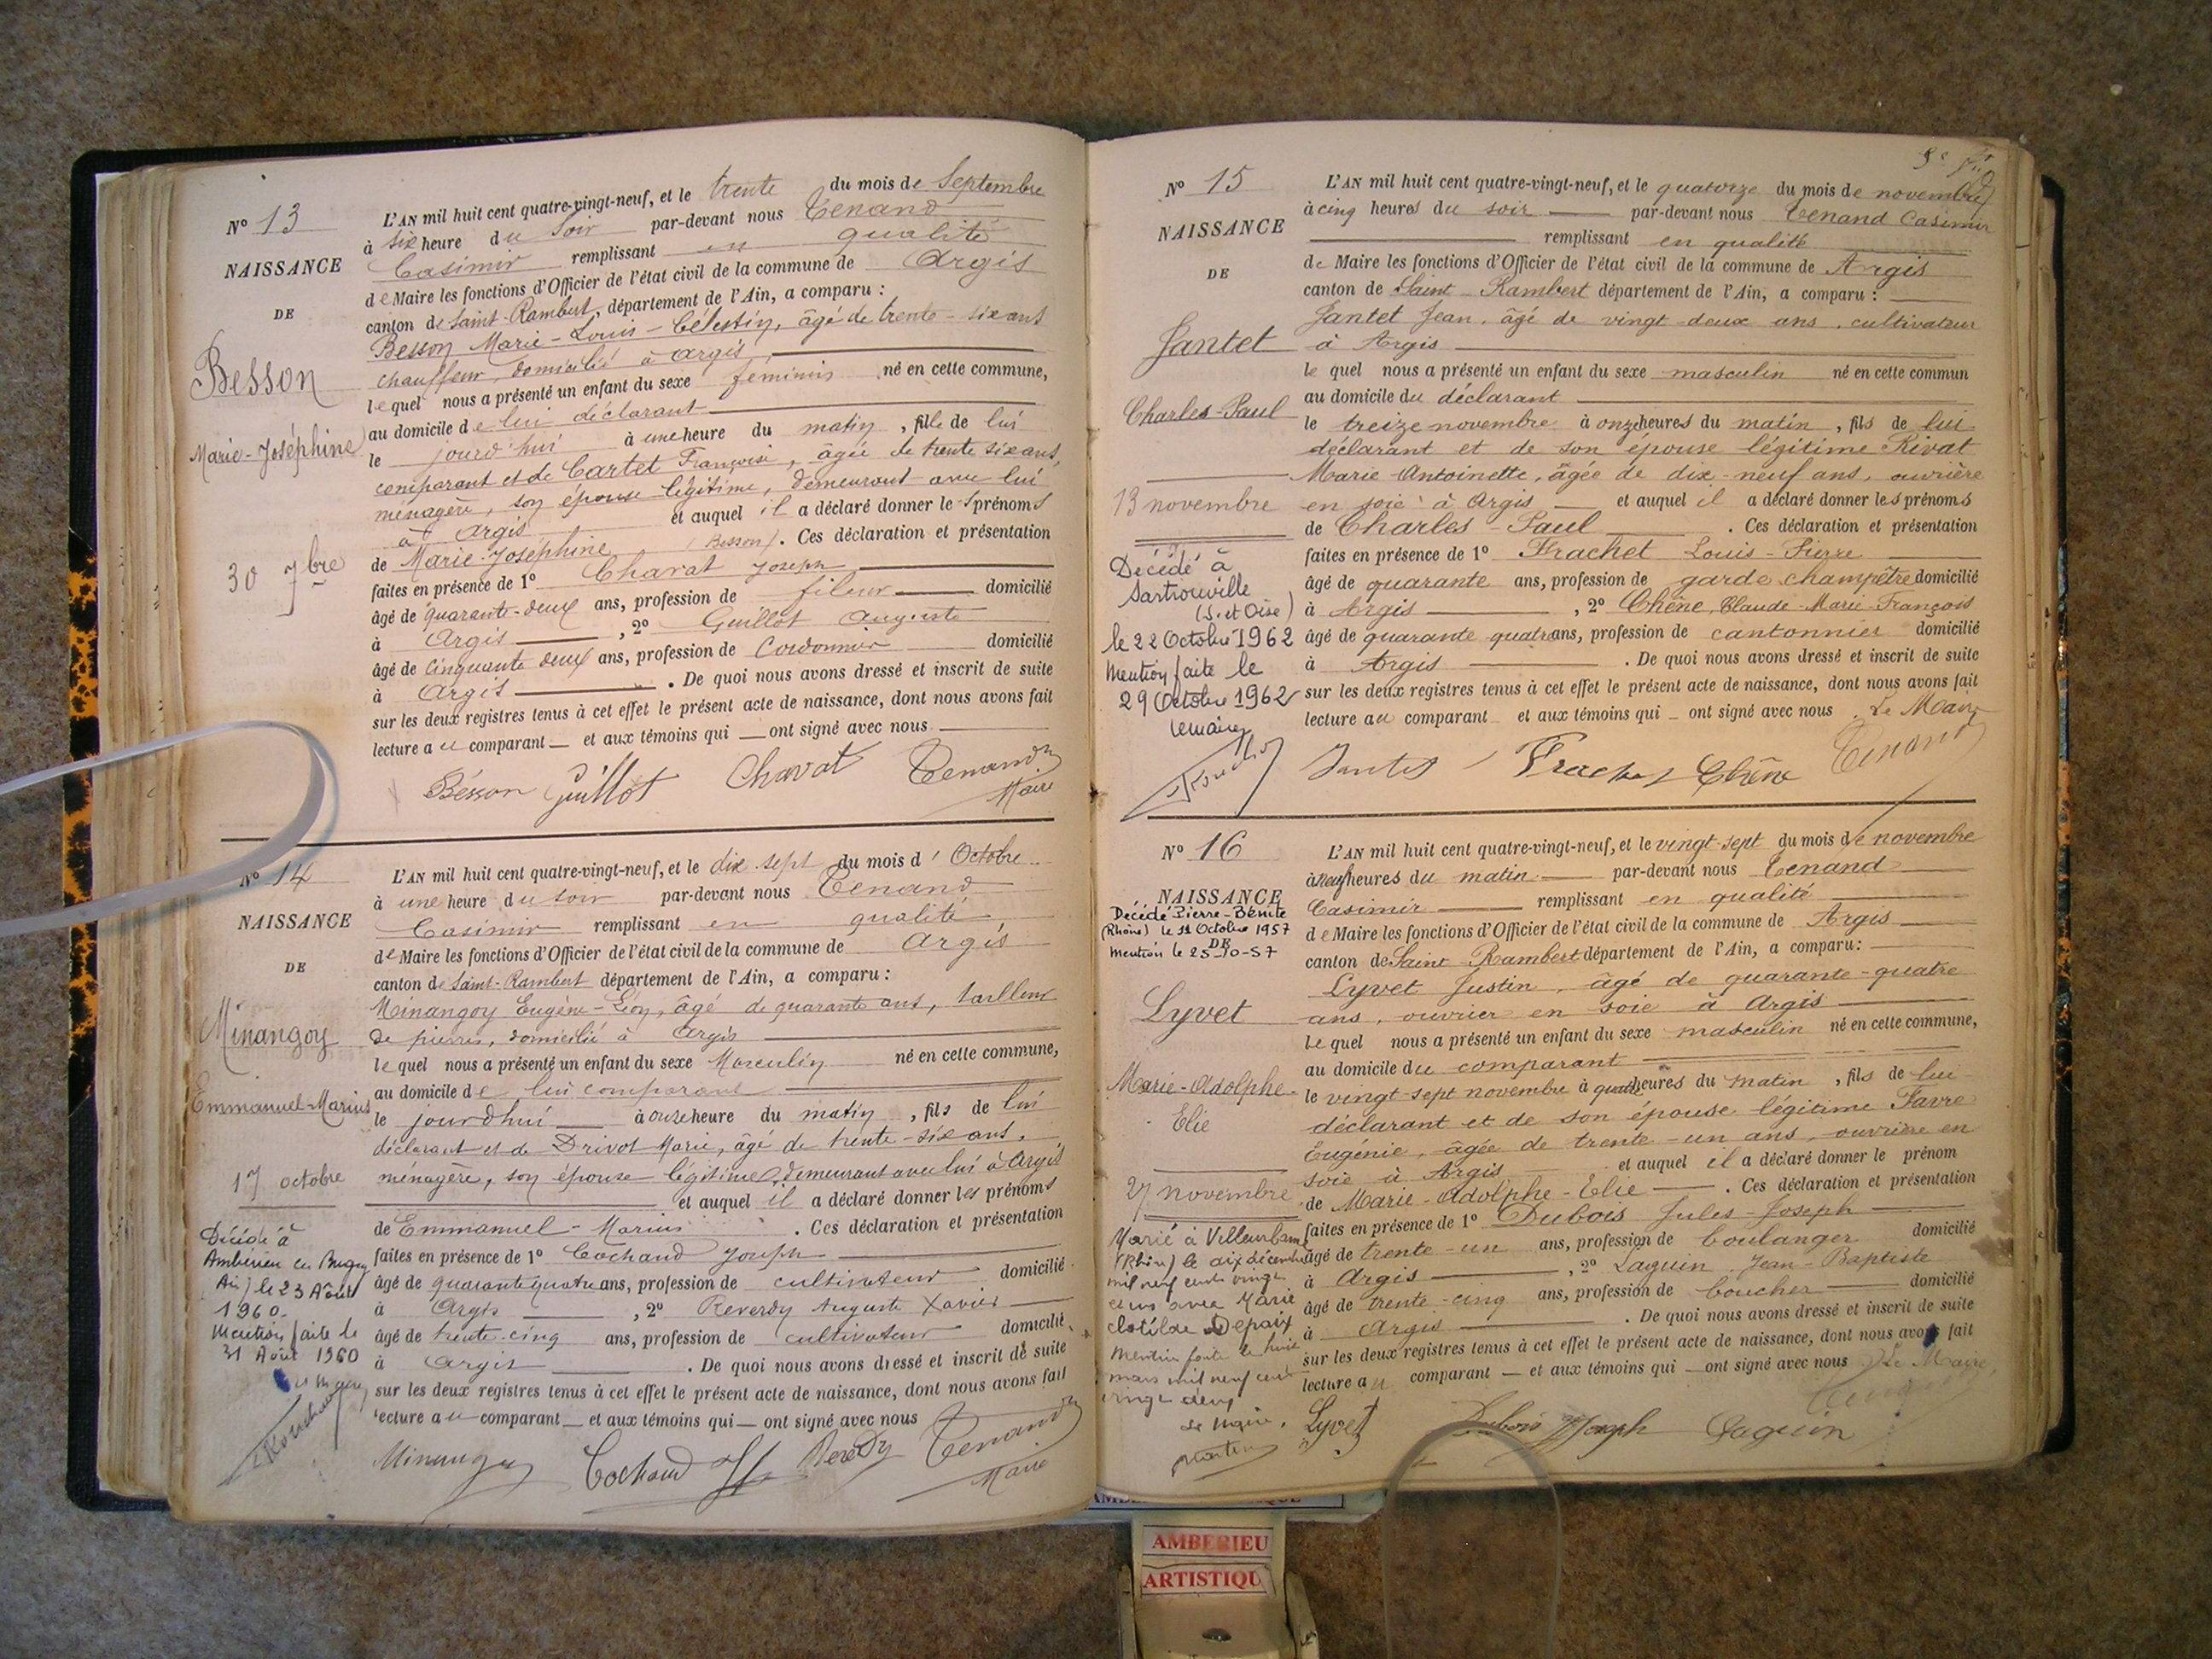 N° 13
NAISSANCE
DE
Besson
Marie-Joséphine
30 7bre
L'AN mil huit cent quatre-vingt-neuf, et le trente du mois de Septembre
à six heure du soir par-devant nous Tenand
Casimir remplissant en qualité
de Maire les fonctions d'Officier de l'état civil de la commune de Argis
canton de Saint-Rambert, département de l'Ain, a comparu :
Besson Marie-Louis-Célestin, âgé de trente-six ans
chauffeur, domicilié à Argis
lequel nous a présenté un enfant du sexe feminin né en cette commune,
au domicile de lui déclarant
le jourd'hui à une heure du matin, fille de lui
comparant et de Cartet Françoise, âgée de trente six ans,
ménagère, son épouse légitime, demeurant avec lui
à Argis et auquel il a déclaré donner les prénoms
de Marie-Joséphine (Besson). Ces déclaration et présentation
faites en présence de 1° Charat Joseph
âgé de quarante-deux ans, profession de fileur domicilié
à Argis, 2° Guillot Auguste
âgé de cinquante deux ans, profession de Cordonnier domicilié
à Argis. De quoi nous avons dressé et inscrit de suite
sur les deux registres tenus à cet effet le présent acte de naissance, dont nous avons fait
lecture au comparant et aux témoins qui ont signé avec nous
Besson Guillot Charat Tenand
Maire
N° 14
NAISSANCE
DE
Minangoy
Emmanuel-Marius
17 octobre
Décédé à
Ambérieu en Bugey
(Ain) le 23 Août
1960.
Mention faite le
31 Août 1960
L'AN mil huit cent quatre-vingt-neuf, et le dix sept du mois d'Octobre
à une heure du soir par-devant nous Tenand
Casimir remplissant en qualité
de Maire les fonctions d'Officier de l'état civil de la commune de Argis
canton de Saint-Rambert département de l'Ain, a comparu :
Minangoy Eugène-Léon, âgé de quarante ans, tailleur
de pierres, domicilié à Argis
lequel nous a présenté un enfant du sexe Masculin né en cette commune,
au domicile de lui comparant
le jourd'hui à onze heure du matin, fils de lui
déclarant et de Drivot Marie, âgé de trente-six ans,
ménagère, son épouse légitime, demeurant avec lui à Argis
et auquel il a déclaré donner les prénoms
de Emmanuel-Marius. Ces déclaration et présentation
faites en présence de 1° Cochand Joseph
âgé de quarante quatre ans, profession de cultivateur domicilié
à Argis, 2° Reverdy Auguste Xavier
âgé de trente-cinq ans, profession de cultivateur domicilié
à Argis. De quoi nous avons dressé et inscrit de suite
sur les deux registres tenus à cet effet le présent acte de naissance, dont nous avons fait
lecture au comparant et aux témoins qui ont signé avec nous
Minangoy Cochand Tenand
Maire
N° 15
NAISSANCE
DE
Jantet
Charles-Paul
13 novembre
Décédé à
Sartrouville
(S. et Oise)
le 22 Octobre 1962
Mention faite le
29 Octobre 1962
L'AN mil huit cent quatre-vingt-neuf, et le quatorze du mois de novembre
à cinq heures du soir par-devant nous Tenand Casimir
remplissant en qualité
de Maire les fonctions d'Officier de l'état civil de la commune de Argis
canton de Saint-Rambert département de l'Ain, a comparu :
Jantet Jean, âgé de vingt-deux ans, cultivateur
à Argis
lequel nous a présenté un enfant du sexe masculin né en cette commun
au domicile du déclarant
le treize novembre à onze heures du matin, fils de lui
déclarant et de son épouse légitime Rivat
Marie-Antoinette, âgée de dix-neuf ans, ouvrière
en soie à Argis et auquel il a déclaré donner les prénoms
de Charles-Paul. Ces déclaration et présentation
faites en présence de 1° Frachet Louis-Pierre
âgé de quarante ans, profession de garde champêtre domicilié
à Argis, 2° Chêne, Claude-Marie-François
âgé de quarante quatre ans, profession de cantonnier domicilié
à Argis. De quoi nous avons dressé et inscrit de suite
sur les deux registres tenus à cet effet le présent acte de naissance, dont nous avons fait
lecture au comparant et aux témoins qui ont signé avec nous. Le Maire
Frachet Chêne Tenand
N° 16
NAISSANCE
Décédé Pierre-Bénite
(Rhône) le 11 Octobre 1957
DE
Mention le 25-10-57
Lyvet
Marie-Adolphe-
Elie
27 novembre
Marié à Villeurbanne
(Rhône) le dix décembre
mil neuf cent vingt
et un avec Marie
Clotilde Depaix
Mention faite le huit
mars mil neuf cent
vingt deux
Le Maire,
L'AN mil huit cent quatre-vingt-neuf, et le vingt-sept du mois de novembre
à neuf heures du matin par-devant nous Tenand
Casimir remplissant en qualité
de Maire les fonctions d'Officier de l'état civil de la commune de Argis
canton de Saint-Rambert département de l'Ain, a comparu :
Lyvet Justin, âgé de quarante-quatre
ans, ouvrier en soie à Argis
lequel nous a présenté un enfant du sexe masculin né en cette commune,
au domicile du comparant
le vingt-sept novembre à quatre heures du matin, fils de lui
déclarant et de son épouse légitime Favre
Eugénie, âgée de trente-un ans, ouvrière en
soie à Argis et auquel il a déclaré donner le prénom
de Marie-Adolphe-Elie. Ces déclaration et présentation
faites en présence de 1° Dubois Jules-Joseph
âgé de trente-un ans, profession de boulanger domicilié
à Argis, 2° Laguin Jean-Baptiste
âgé de trente-cinq ans, profession de boucher domicilié
à Argis. De quoi nous avons dressé et inscrit de suite
sur les deux registres tenus à cet effet le présent acte de naissance, dont nous avons fait
lecture au comparant et aux témoins qui ont signé avec nous. Le Maire,
Lyvet Dubois Joseph Laguin
AMBERIEU
ARTISTIQU